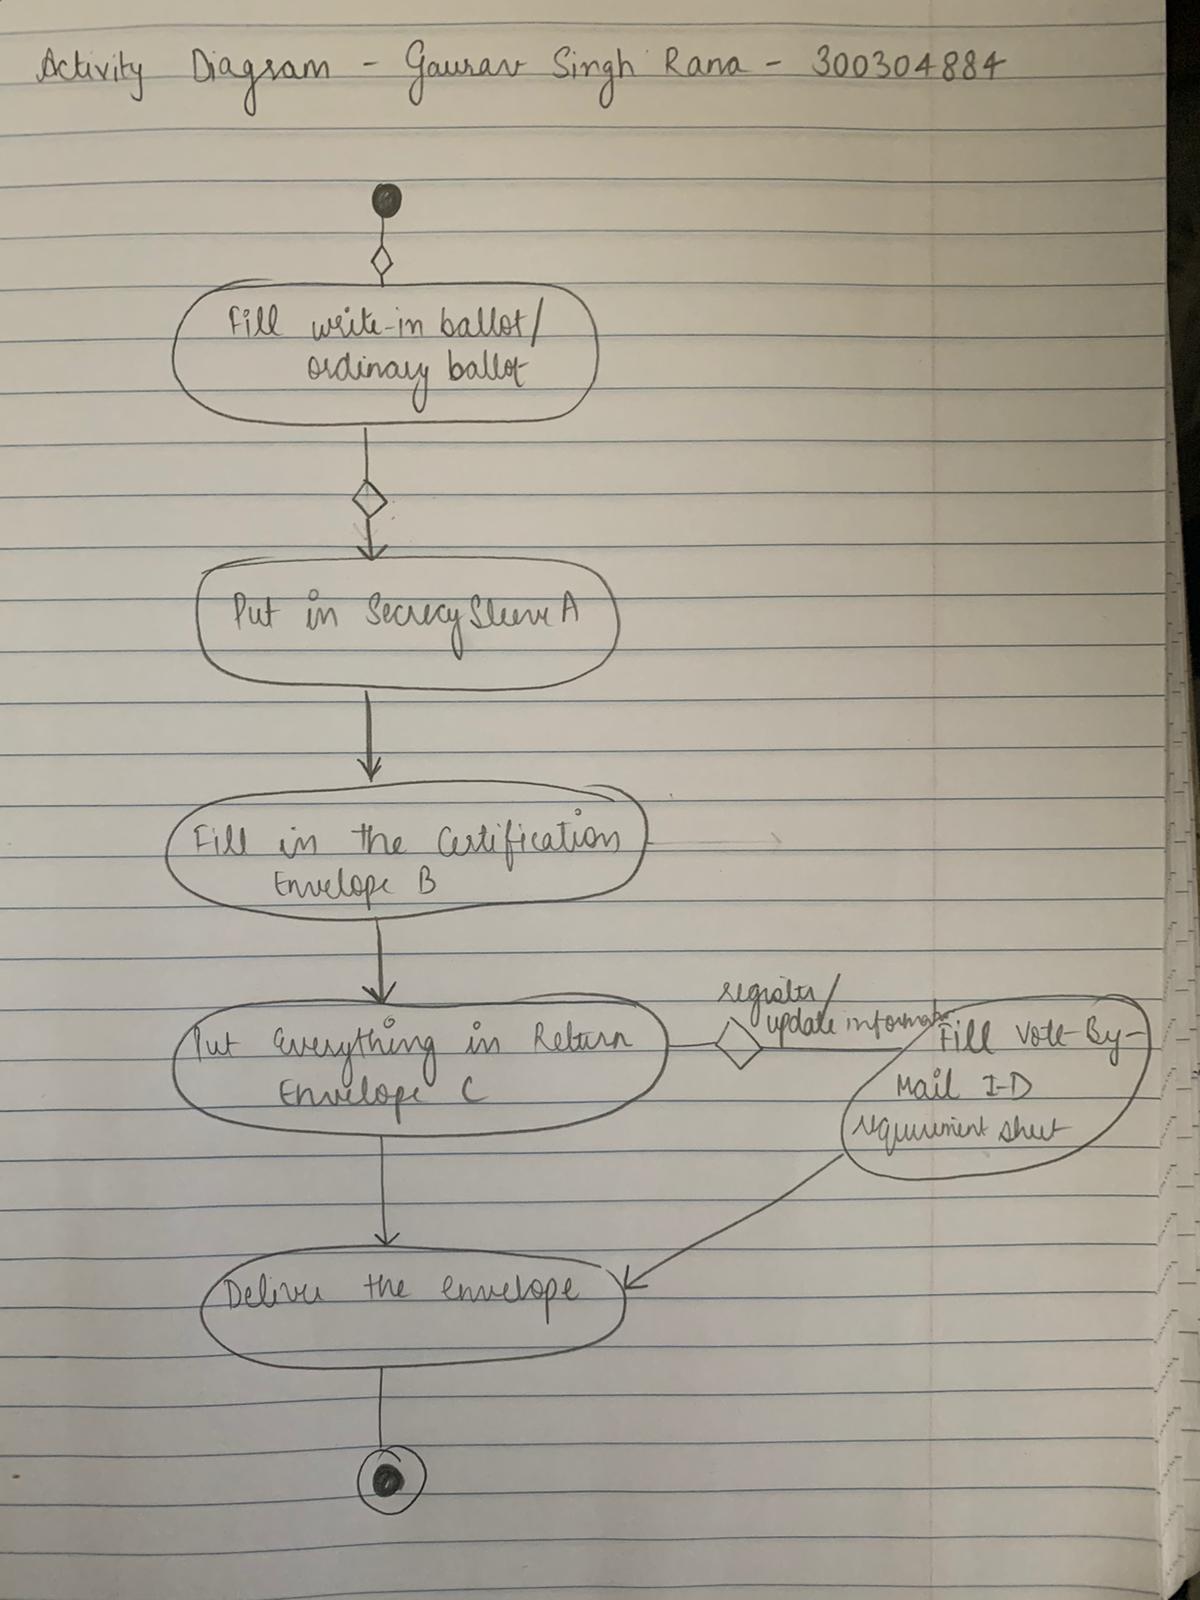 Activity Diagram - Gaurav Singh Rana - 300304884
Fill write-in ballot/
ordinary ballot
Put in Secrecy Sleeve A
Fill in the Certification
Envelope B
Put Everything in Return
Envelope C
register/
update information
Fill Vote-By-
Mail I-D
requirement sheet
Deliver the envelope